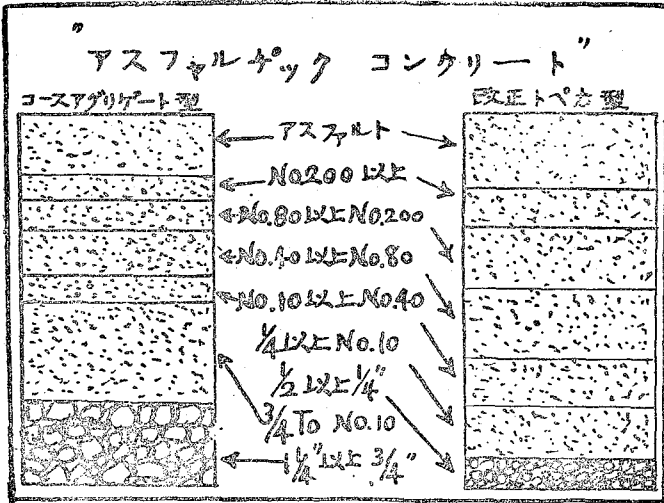 "アスファルヂック コンクリート"
コースアグリゲート型
改正トペカ型
アスファルト
No.200以上
No.80以上No.200
No.40以上No.80
No.10以上No.40
1/4以上No.10
1/2以上1/4"
3/4 To No.10
1 1/4"以上 3/4"